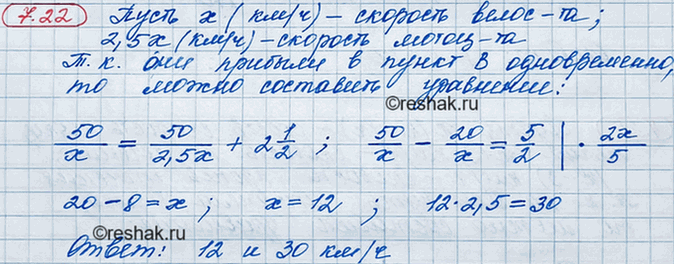 7.22 Пусть x (км/ч) – скорость велос-та;
2,5x (км/ч) – скорость мотоц-та
Т.к. они прибыли в пункт В одновременно,
то можно составить уравнение:
©reshak.ru
50/x = 50/2,5x + 2 1/2 ; 50/x − 20/x = 5/2 | · 2x/5
20 − 8 = x ; x = 12 ; 12·2,5 = 30
©reshak.ru
Ответ: 12 и 30 км/ч